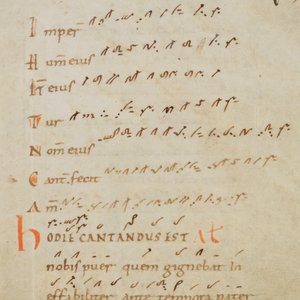 Imper̄
H um̄ eius
Et eius
Tur
N om̄ eius
Cant̄. fecit
A m̄
HODIE CANTANDUS EST
nobis puer quem gignebat in
effabiliter ante tempora pater